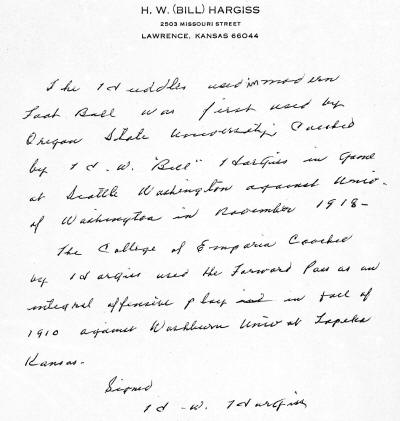 H. W. (BILL) HARGISS
2503 MISSOURI STREET
LAWRENCE, KANSAS 66044
The Huddles used in modern
Foot Ball was first used by
Oregon State University Coached
by H. W. "Bill" Hargiss in Game
at Seattle Washington against Univ.
of Washington in November 1918-
The College of Emporia Coached
by Hargiss used the Forward Pass as an
integral offensive play in fall of
1910 against Washburn Univ at Topeka
Kansas-
Signed
H-W. Hargiss